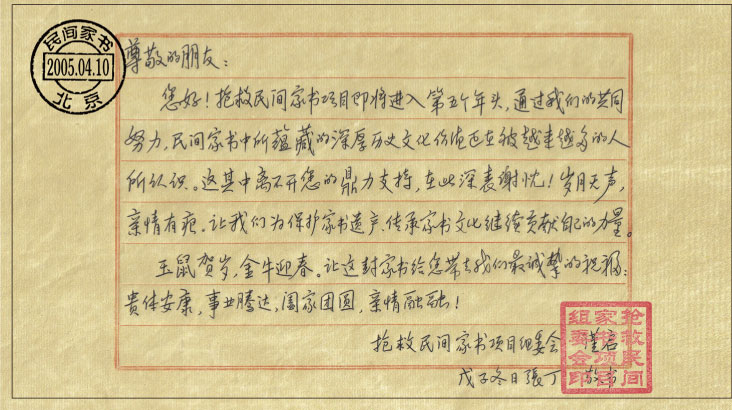 民间家书
2005.04.10
北京
尊敬的朋友：
您好！抢救民间家书项目即将进入第五个年头，通过我们的共同
努力，民间家书中所蕴藏的深厚历史文化价值正在被越来越多的人
所认识。这其中离不开您的鼎力支持，在此深表谢忱！岁月无声，
亲情有痕。让我们为保护家书遗产、传承家书文化继续贡献自己的力量。
玉鼠贺岁，金牛迎春。让这封家书给您带去我们最诚挚的祝福：
贵体安康，事业腾达，阖家团圆，亲情融融！
抢救民间家书项目组委会 谨启
戊子冬日張丁 敬书
抢救民间
家书项目
组委会印